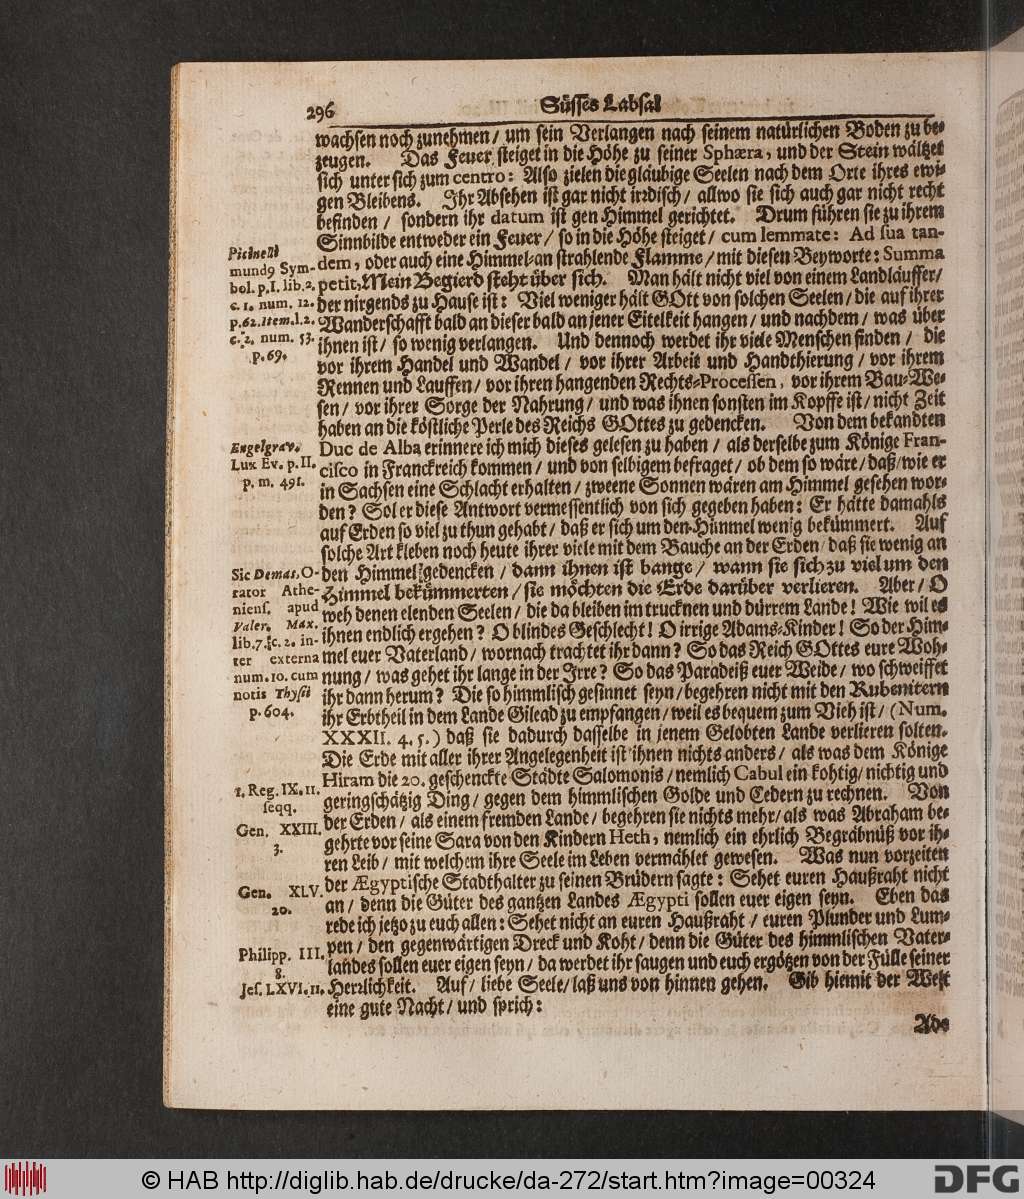 296
Süsses Labsal
wachsen noch zunehmen / um sein Verlangen nach seinem natürlichen Boden zu be-
zeugen. Das Feuer steiget in die Höhe zu seiner Sphæra, und der Stein wältzet
sich unter sich zum centro: Also zielen die gläubige Seelen nach dem Orte ihres ewi-
gen Bleibens. Ihr Absehen ist gar nicht irrdisch / allwo sie sich auch gar nicht recht
befinden / sondern ihr datum ist gen Himmel gerichtet. Drum führen sie zu ihrem
Sinnbilde entweder ein Feuer / so in die Höhe steiget / cum lemmate: Ad sua tan-
dem, oder auch eine Himmel-an strahlende Flamme / mit diesen Beyworte: Summa
petit, Mein Begierd steht über sich. Man hält nicht viel von einem Landläuffer /
der nirgends zu Hause ist: Viel weniger hält GOtt von solchen Seelen / die auf ihrer
Wanderschafft bald an dieser bald an jener Eitelkeit hangen / und nachdem / was über
ihnen ist / so wenig verlangen. Und dennoch werdet ihr viele Menschen finden / die
vor ihrem Handel und Wandel / vor ihrer Arbeit und Handthierung / vor ihrem
Rennen und Lauffen / vor ihren hangenden Rechts-Processen, vor ihrem Bau-We-
sen / vor ihrer Sorge der Nahrung / und was ihnen sonsten im Kopffe ist / nicht Zeit
haben an die köstliche Perle des Reichs GOttes zu gedencken. Von dem bekandten
Duc de Alba erinnere ich mich dieses gelesen zu haben / als derselbe zum Könige Fran-
cisco in Franckreich kommen / und von selbigem befraget / ob dem so wäre / daß / wie er
in Sachsen eine Schlacht erhalten / zweene Sonnen wären am Himmel gesehen wor-
den? Sol er diese Antwort vermessentlich von sich gegeben haben: Er hätte damahls
auf Erden so viel zu thun gehabt / daß er sich um den Himmel wenig bekümmert. Auf
solche Art kleben noch heute ihrer viele mit dem Bauche an der Erden / daß sie wenig an
den Himmel gedencken / dann ihnen ist bange / wann sie sich zu viel um den
Himmel bekümmerten / sie möchten die Erde darüber verlieren. Aber / O
weh denen elenden Seelen / die da bleiben im trucknen und dürrem Lande! Wie wil es
ihnen endlich ergehen? O blindes Geschlecht! O irrige Adams-Kinder! So der Him-
mel euer Vaterland / wornach trachtet ihr dann? So das Reich GOttes eure Woh-
nung / was gehet ihr lange in der Irre? So das Paradeiß euer Weide / wo schweiffet
ihr dann herum? Die so himmlisch gesinnet seyn / begehren nicht mit den Rubenitern
ihr Erbtheil in dem Lande Gilead zu empfangen / weil es bequem zum Vieh ist / (Num.
XXXII. 4. 5.) daß sie dadurch dasselbe in jenem Gelobten Lande verlieren solten.
Die Erde mit aller ihrer Angelegenheit ist ihnen nichts anders / als was dem Könige
Hiram die 20. geschenckte Städte Salomonis / nemlich Cabul ein kohtig / nichtig und
geringschätzig Ding / gegen dem himmlischen Golde und Cedern zu rechnen. Von
der Erden / als einem fremden Lande / begehren sie nichts mehr / als was Abraham be-
gehrte vor seine Sara von den Kindern Heth, nemlich ein ehrlich Begräbnüß vor ih-
ren Leib / mit welchem ihre Seele im Leben vermählet gewesen. Was nun vorzeiten
der Ægyptische Stadthalter zu seinen Brüdern sagte: Sehet euren Haußraht nicht
an / denn die Güter des gantzen Landes Ægypti sollen euer eigen seyn. Eben das
rede ich jetzo zu euch allen: Sehet nicht an euren Haußraht / euren Plunder und Lum-
pen / den gegenwärtigen Dreck und Koht / denn die Güter des himmlischen Vater-
landes sollen euer eigen seyn / da werdet ihr saugen und euch ergötzen von der Fülle seiner
Herrlichkeit. Auf / liebe Seele / laß uns von hinnen gehen. Gib hiemit der Welt
eine gute Nacht / und sprich:
Ade
Picinell
mund9 Sym-
bol. p. I. lib. 2.
c. 1. num. 12.
p. 62. Item. l. 2.
c. 2. num. 53.
p. 69.
Engelgrav.
Lux Ev. p. II.
p. m. 491.
Sic Demas. O-
rator Athe-
niens. apud
Valer. Max.
lib. 7. c. 2. in-
ter externa
num. 10. cum
notis Thysii
p. 604.
1. Reg. IX. 11.
seqq.
Gen. XXIII.
3.
Gen. XLV.
20.
Philipp. III.
8.
Jes. LXVI. 11.
© HAB http://diglib.hab.de/drucke/da-272/start.htm?image=00324
DFG